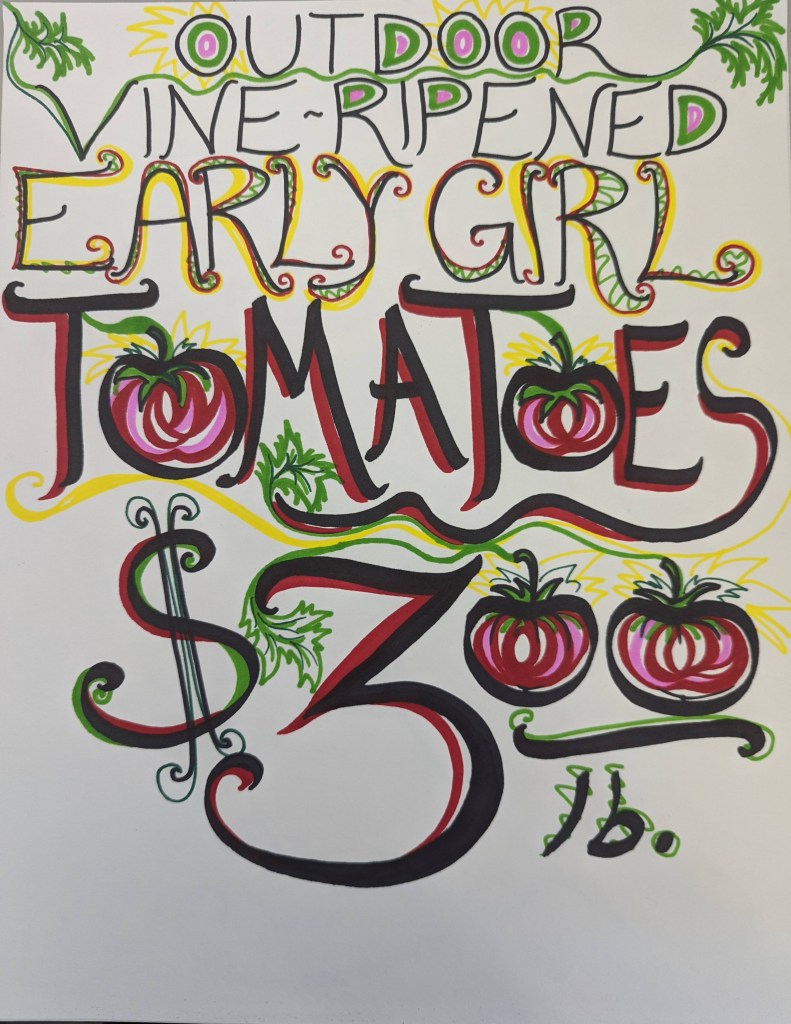 OUTDOOR
VINE-RIPENED
EARLY GIRL
TOMATOES
$300
lb.